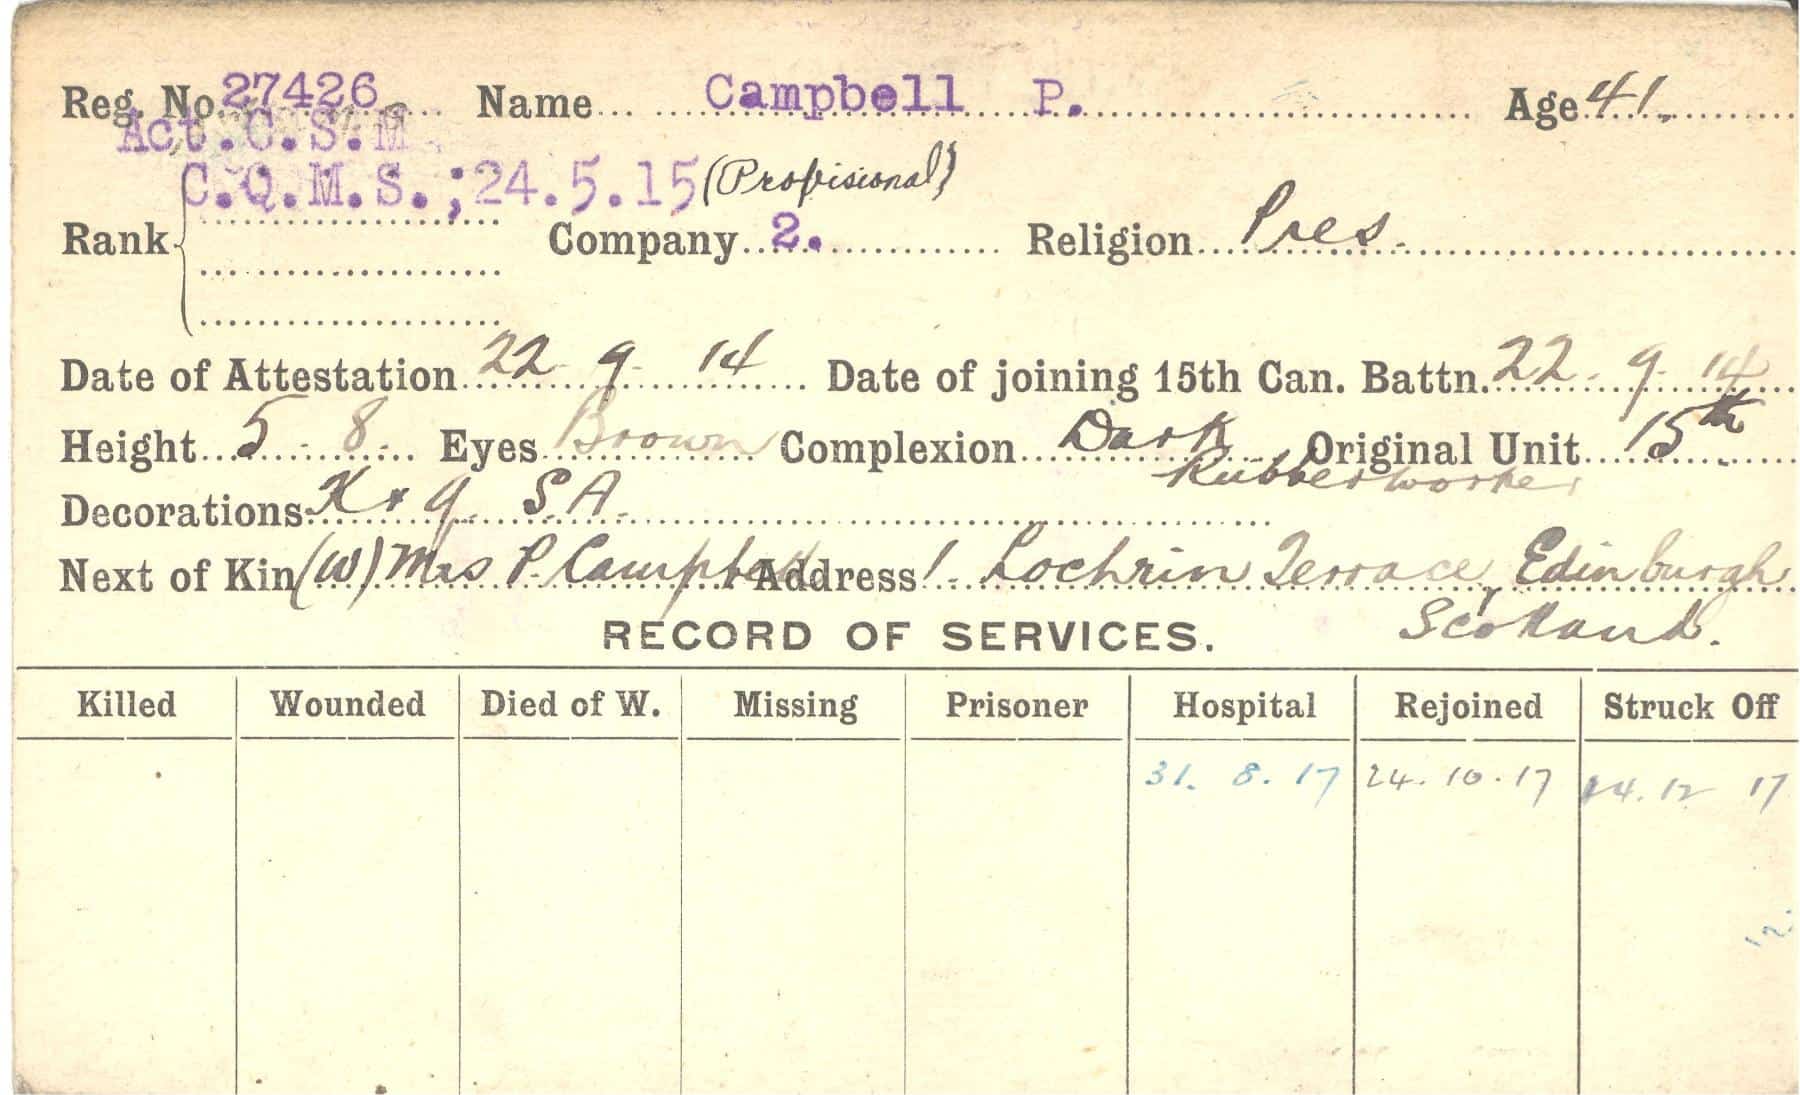 Reg. No. 27426 Name Campbell P. Age 41.
Act.C.S.M
C.Q.M.S.;24.5.15 (Provisional)
Rank Company 2. Religion Pres.
Date of Attestation 22 9 14 Date of joining 15th Can. Battn. 22 . 9 . 14
Height 5 . 8. Eyes Brown Complexion Dark Original Unit 15th
Rubberworker
Decorations K & Q. S.A.
Next of Kin (W) Mrs P. Campbell Address 1. Lochrin Terrace, Edinburgh
Scotland.
RECORD OF SERVICES.
Killed Wounded Died of W. Missing Prisoner Hospital Rejoined Struck Off
31. 8. 17 24. 10. 17 24. 12 17